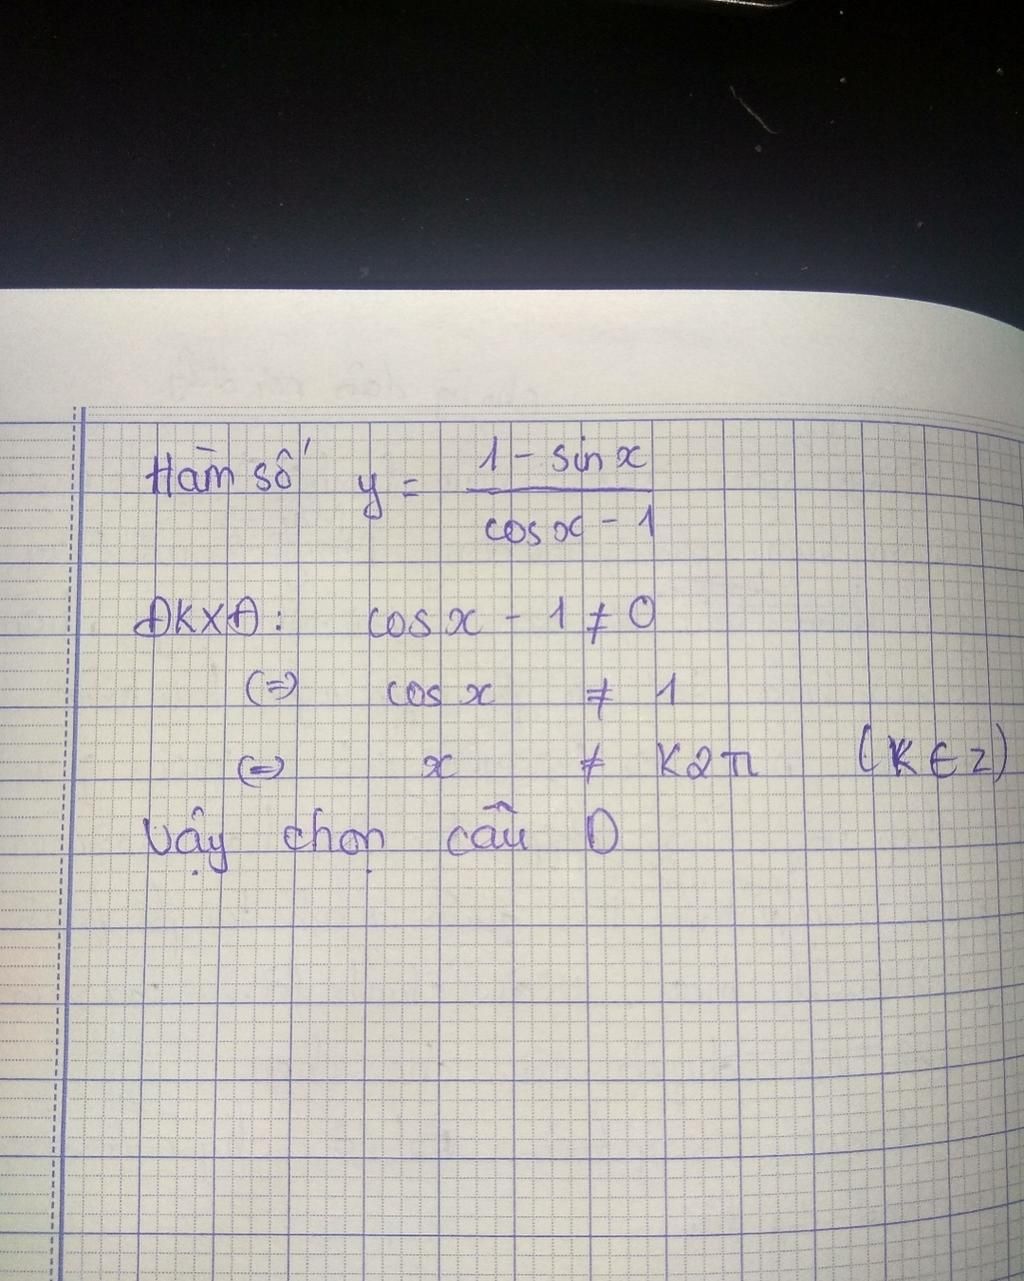 Hàm số y = (1 - sin x) / (cos x - 1)
ĐKXĐ: cos x - 1 ≠ 0
(=) cos x ≠ 1
(=) x ≠ K2π (K ∈ Z)
Vậy chọn câu D